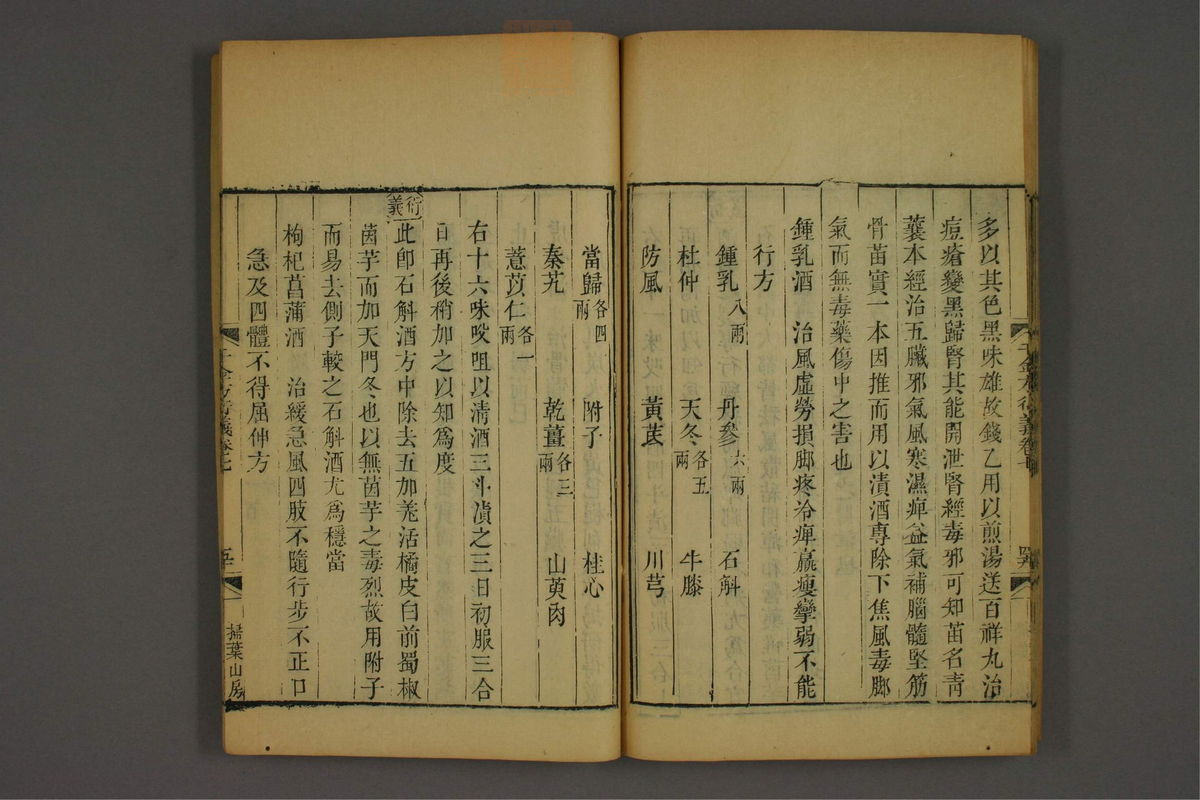 多以其色黑味雄故錢乙用以煎湯送百祥丸治
痘瘡變黑歸腎其能開泄腎經毒邪可知苗名青
蘘本經治五臟邪氣風寒濕痺益氣補腦髓堅筋
骨苗實一本因推而用以漬酒專除下焦風毒脚
氣而無毒藥傷中之害也
鍾乳酒 治風虛勞損脚疼冷痺羸瘦攣弱不能
行方
鍾乳八兩 丹參六兩 石斛
杜仲 天冬各五兩 牛膝
防風 黃芪 川芎
當歸各四兩 附子 桂心
秦艽 乾薑各三兩 山萸肉
薏苡仁各一兩
右十六味㕮咀以清酒三斗漬之三日初服三合
日再後稍加之以知為度
衍義
此卽石斛酒方中除去五加羌活橘皮白前蜀椒
茵芋而加天門冬也以無茵芋之毒烈故用附子
而易去側子較之石斛酒尤為穩當
枸杞菖蒲酒 治緩急風四肢不隨行步不正口
急及四體不得屈伸方
千金方衍義卷七
掃葉山房